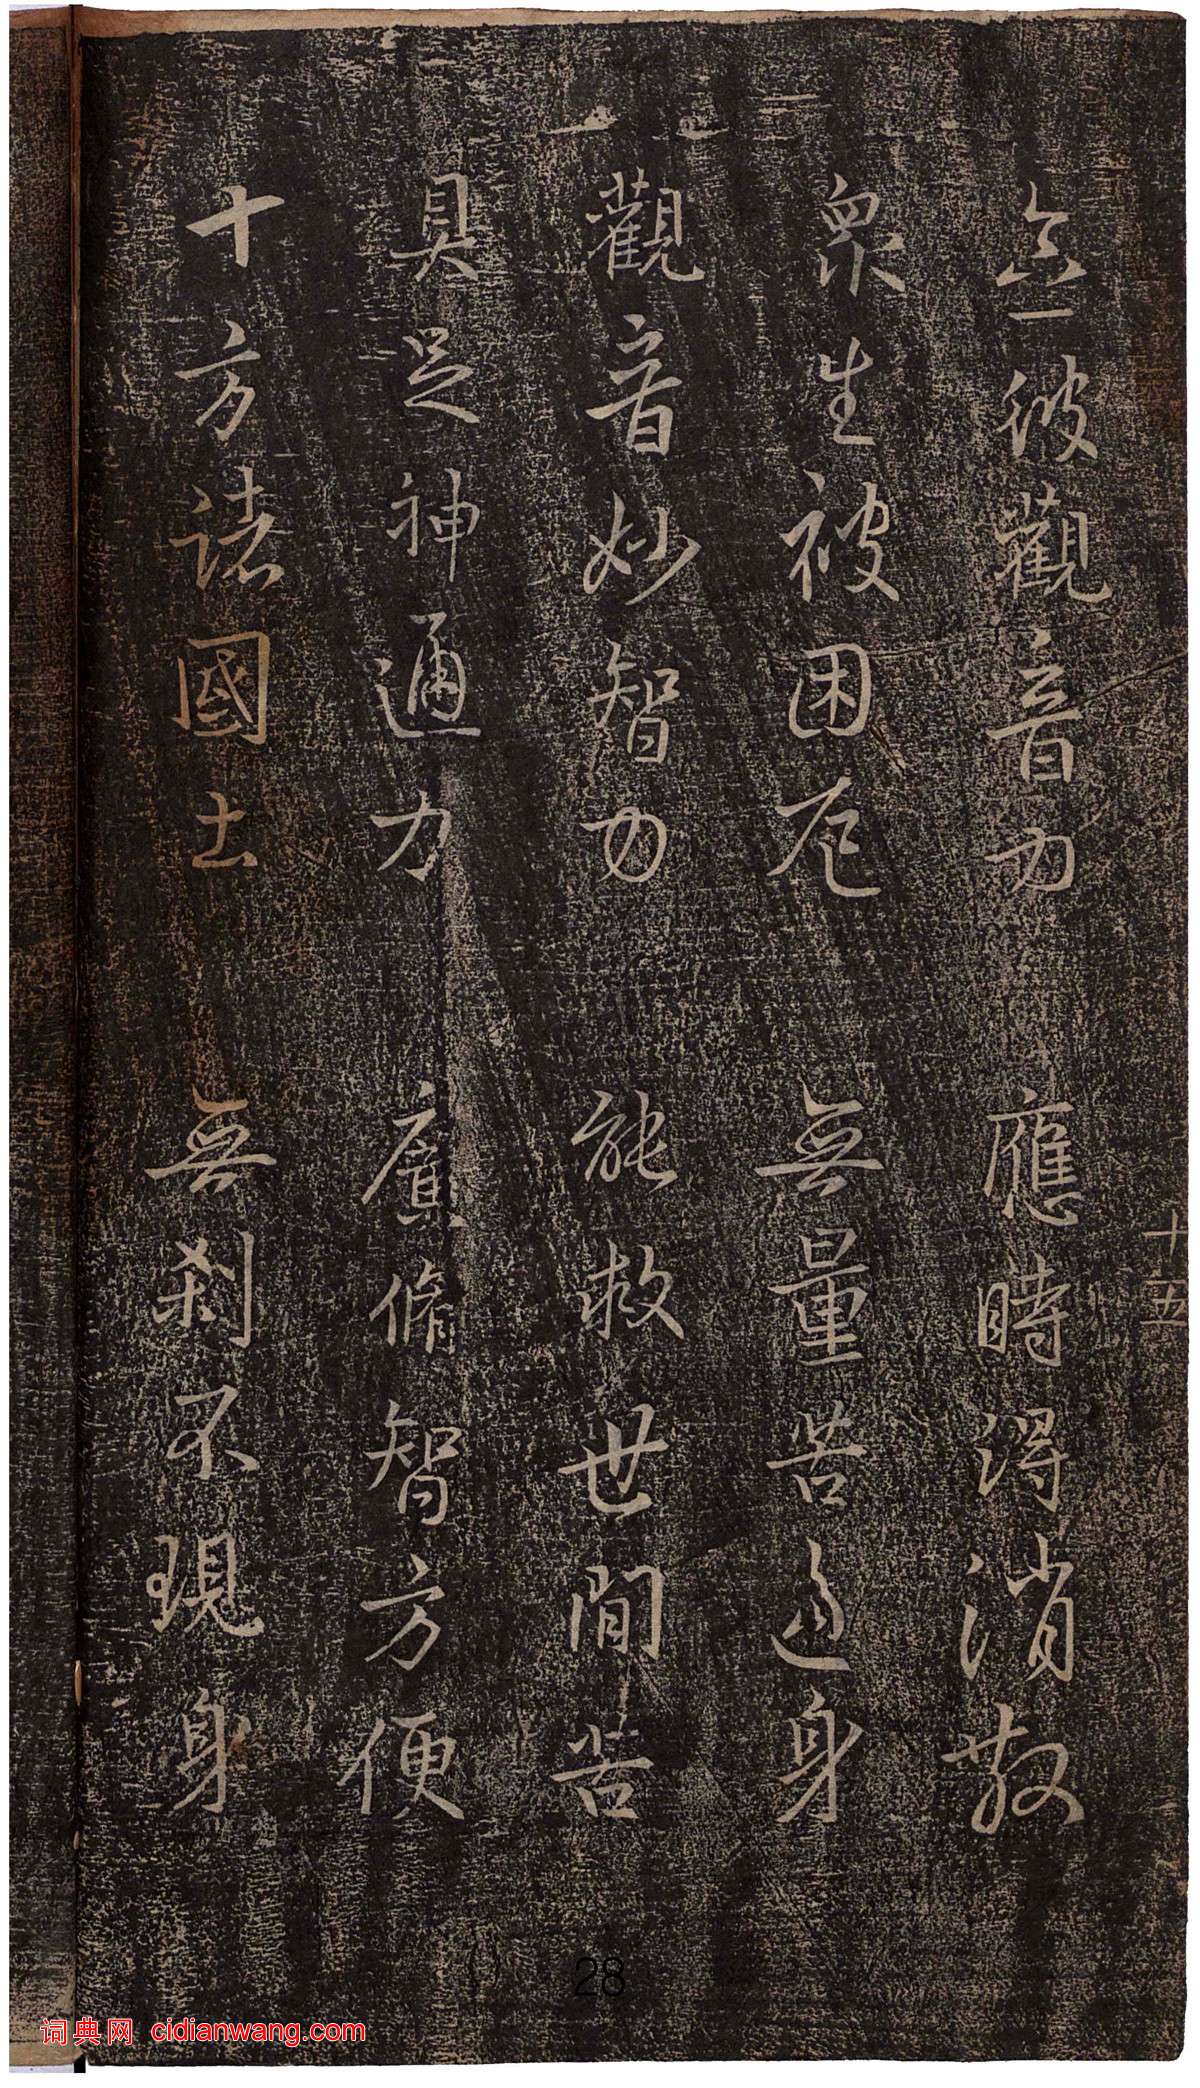 念彼觀音力 應時得消散
衆生被困厄 無量苦逼身
觀音妙智力 能救世間苦
具足神通力 廣脩智方便
十方諸國土 無刹不現身
十五
28
词典网 cidianwang.com